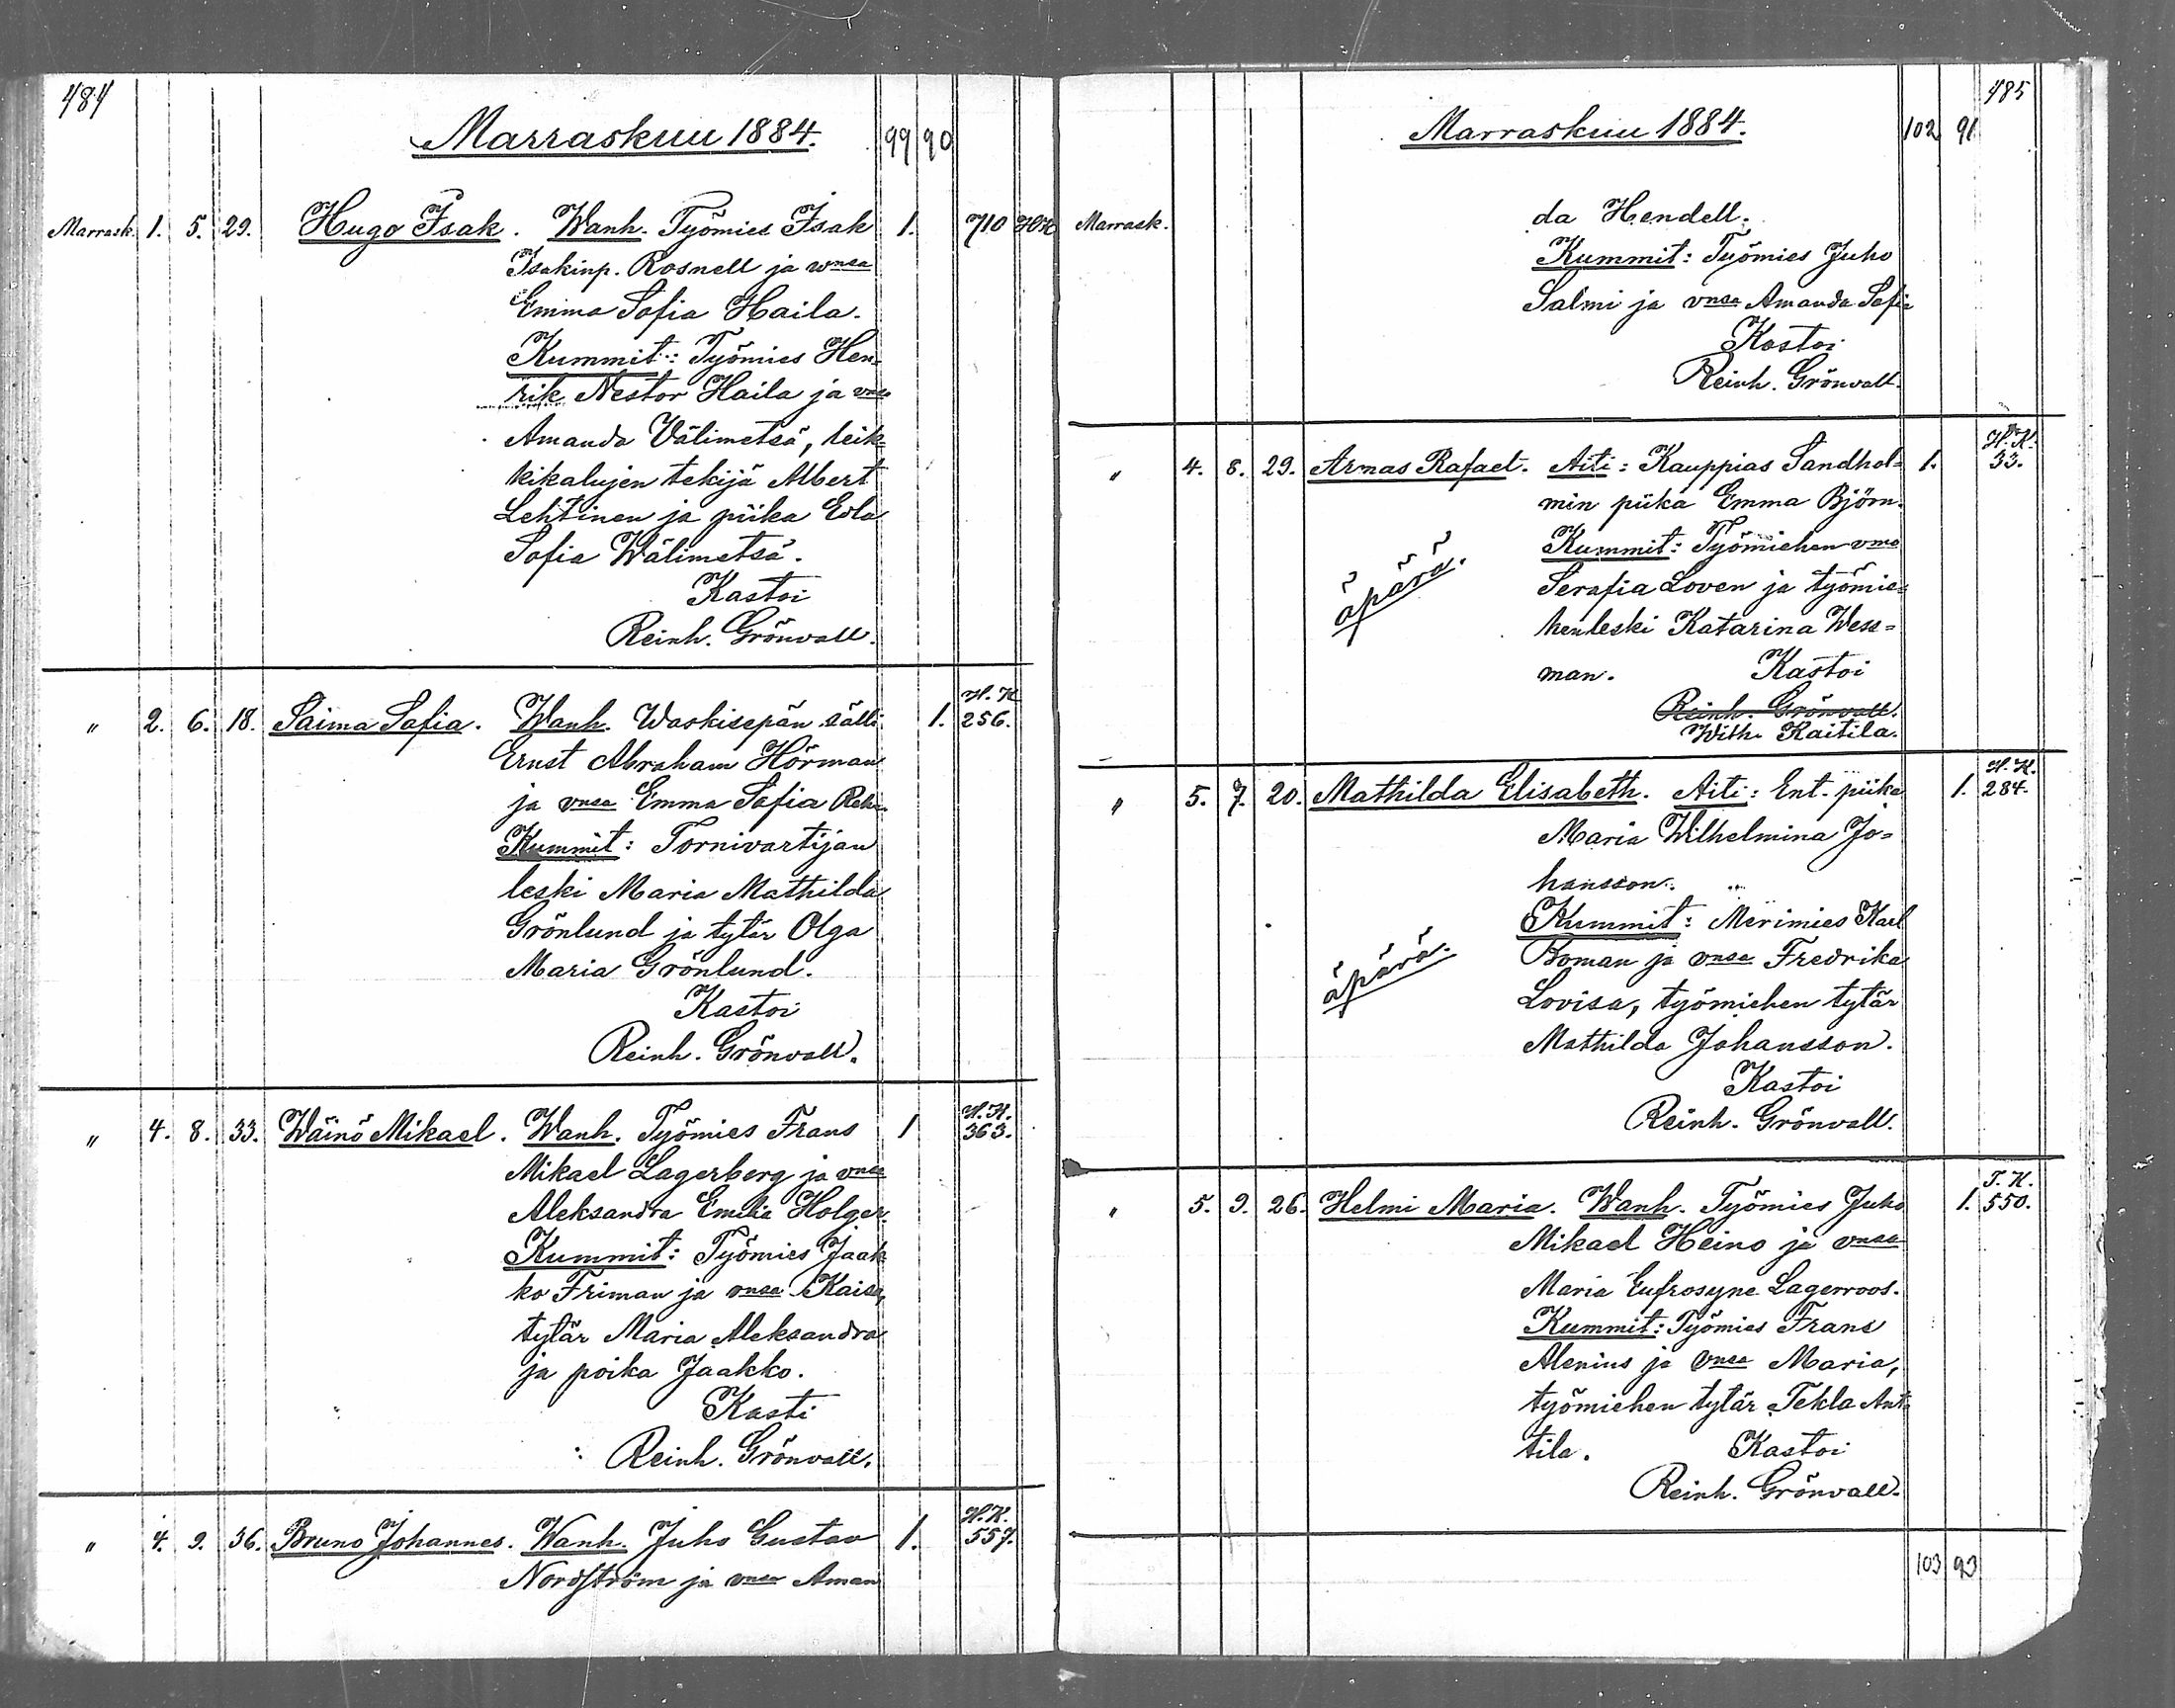 484
Marraskuu 1884. 99 90
Marrask. 1. 5. 29. Hugo Isak. Wanh. Työmies Isak 1. 710
Isakinp. Rosnell ja wnsa
Emma Sofia Haila.
Kummit: Työmies Hen-
rik Nestor Haila ja vnsa
Amanda Välimetsä, leik-
kikalujen tekijä Albert
Lehtinen ja piika Eola
Sofia Wälimetsä.
Kastoi
Reinh. Grönvall.
" 2. 6. 18. Saima Sofia. Wanh. Waskisepän sälli 1. H.K. 256.
Ernst Abraham Hörman
ja vnsa Emma Sofia
Kummit: Tornivartijan
leski Maria Mathilda
Grönlund ja tytär Olga
Maria Grönlund.
Kastoi
Reinh. Grönvall.
" 4. 8. 33. Wäinö Mikael. Wanh. Työmies Frans 1 H.K. 363.
Mikael Lagerberg ja vnsa
Aleksandra Emilia Holger.
Kummit: Työmies Jaak
ko Friman ja vnsa Kaisa,
tytär Maria Aleksandra
ja poika Jaakko.
Kasti
Reinh. Grönvall.
" 4. 9. 36. Bruno Johannes. Wanh. Juho Gustav 1. H.K. 557.
Nordström ja vnsa Aman
485
Marraskuu 1884. 102 91
Marrask. da Hendell.
Kummit: Työmies Juho
Salmi ja vnsa Amanda Sofia
Kastoi
Reinh. Grönvall.
" 4. 8. 29. Arnas Rafael. Äiti: Kauppias Sandhol= 1. H.K. 33.
min piika Emma Björn.
Kummit: Työmiehen vmo
Serafia Loven ja työmie=
äpärä.
henleski Katarina Wess=
man. Kastoi
Reinh. Grönvall.
Wilh. Kaitila.
" 5. 7. 20. Mathilda Elisabeth. Äiti: Ent. piika 1. H.K. 284.
Maria Wilhelmina Jo=
hansson.
Kummit: Merimies Karl
äpärä. Boman ja vnsa Fredrika
Lovisa, työmiehen tytär
Mathilda Johansson.
Kastoi
Reinh. Grönvall.
" 5. 9. 26. Helmi Maria. Wanh. Työmies Juho 1. T.K. 550.
Mikael Heino ja vnsa
Maria Eufrosyne Lagerroos.
Kummit: Työmies Frans
Alenius ja vnsa Maria,
työmiehen tytär Tekla Ant-
tila. Kastoi
Reinh. Grönvall.
103 93